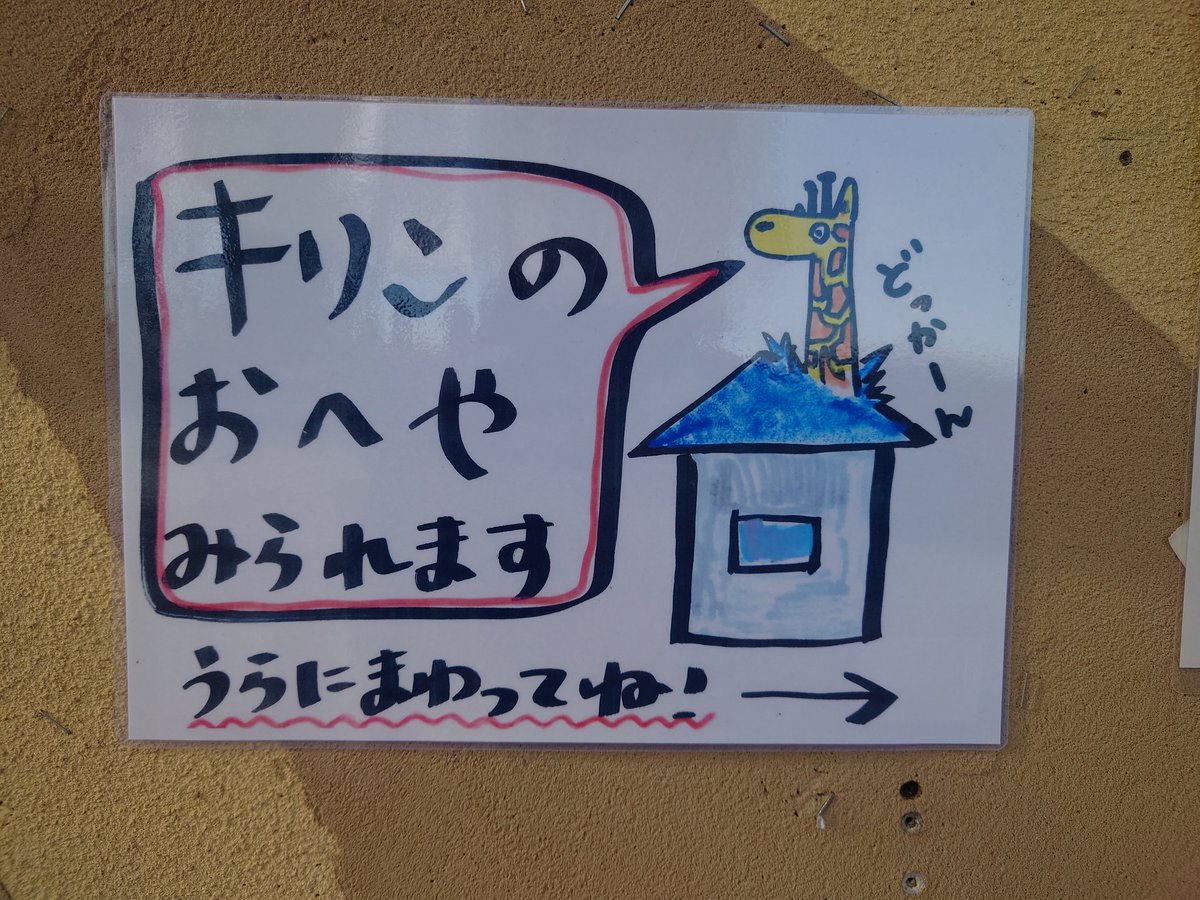 キリンの
おへや
みられます
どっかーん
うらにまわってね!